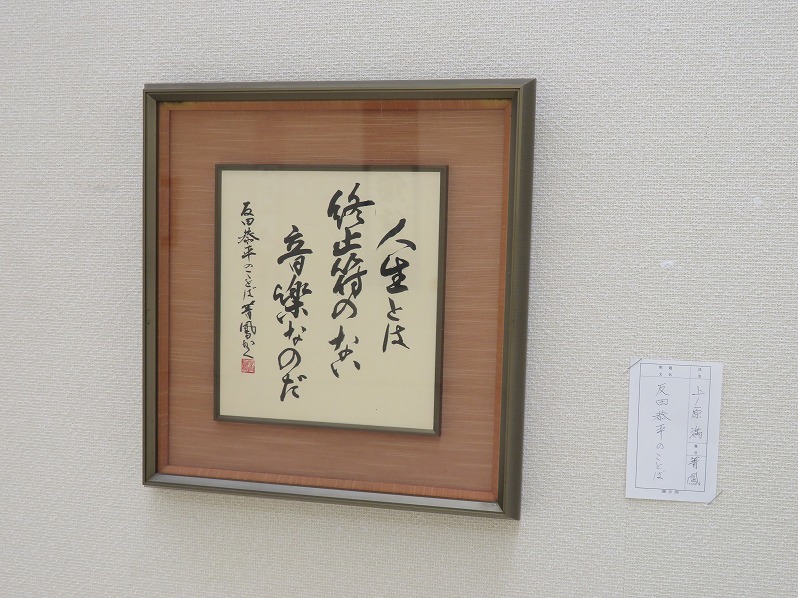 人生とは
終止符のない
音楽なのだ
反田恭平のことば 菁鳳かく
上ノ原 満
菁鳳
反田恭平のことば